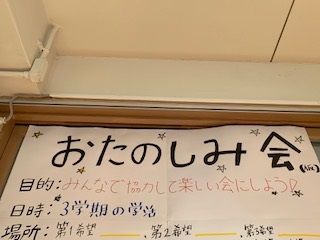 おたのしみ会(仮)
目的:みんなで協力して楽しい会にしよう♡
日時:3学期の学活
場所:第1希望 、第2希望 、第3希望